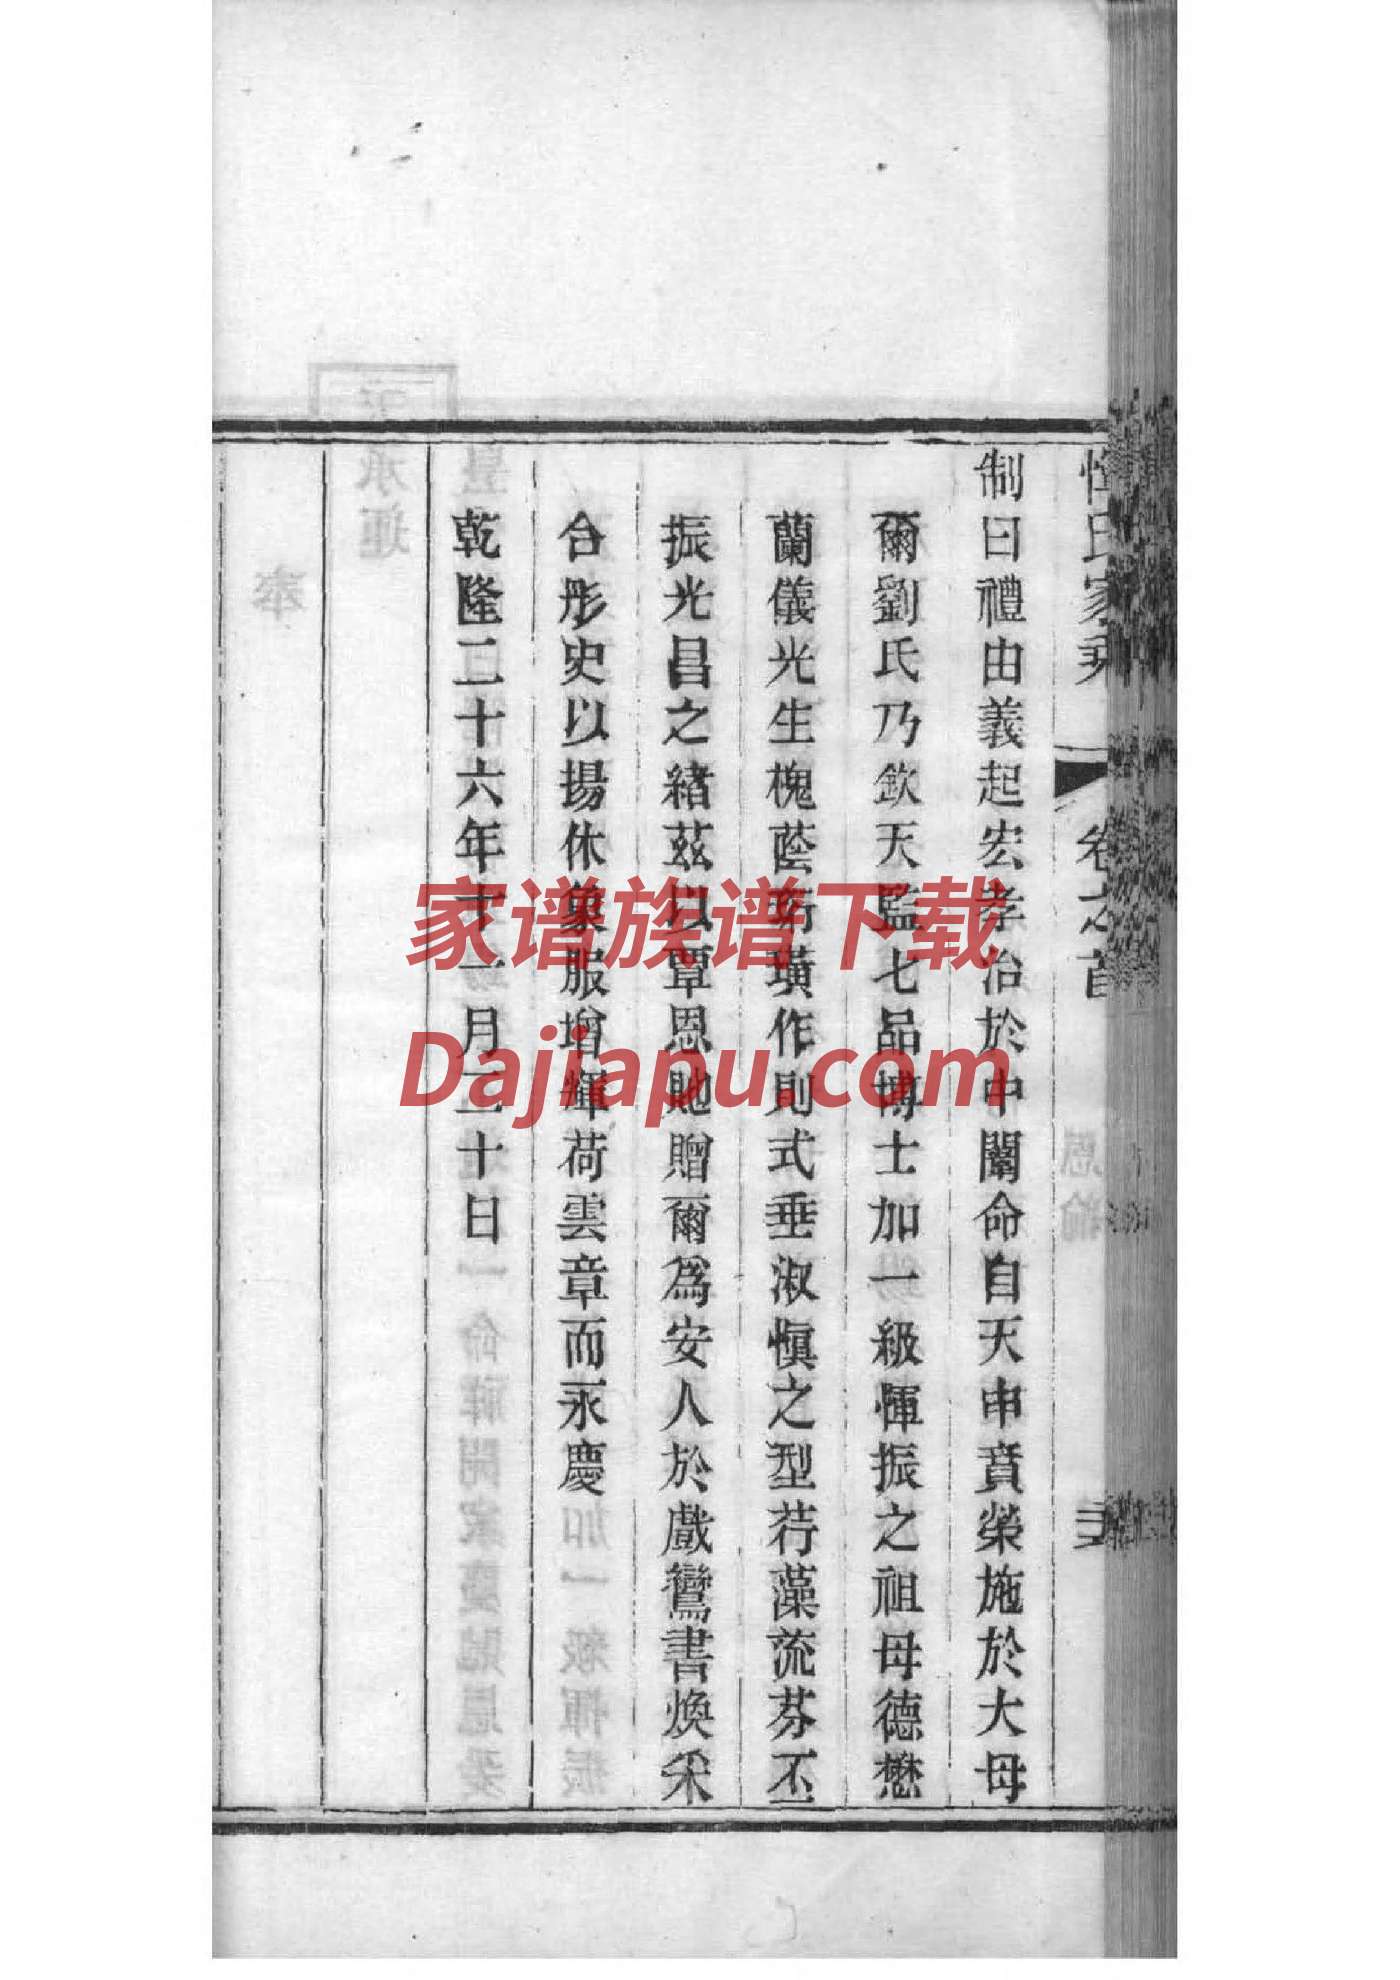 惲氏家乘
卷之首
制曰禮由義起宏孝治於中闈命自天申賁榮施於大母
爾劉氏乃欽天監七品博士加一級惲振之祖母德懋
蘭儀光生槐蔭珩璜作則式垂淑慎之型荇藻流芬丕
振光昌之緒茲以覃恩貤贈爾為安人於戲鸞書煥采
合彤史以揚休象服增輝荷雲章而永慶
乾隆二十六年十一月二十日
家谱族谱下载
Dajiapu.com